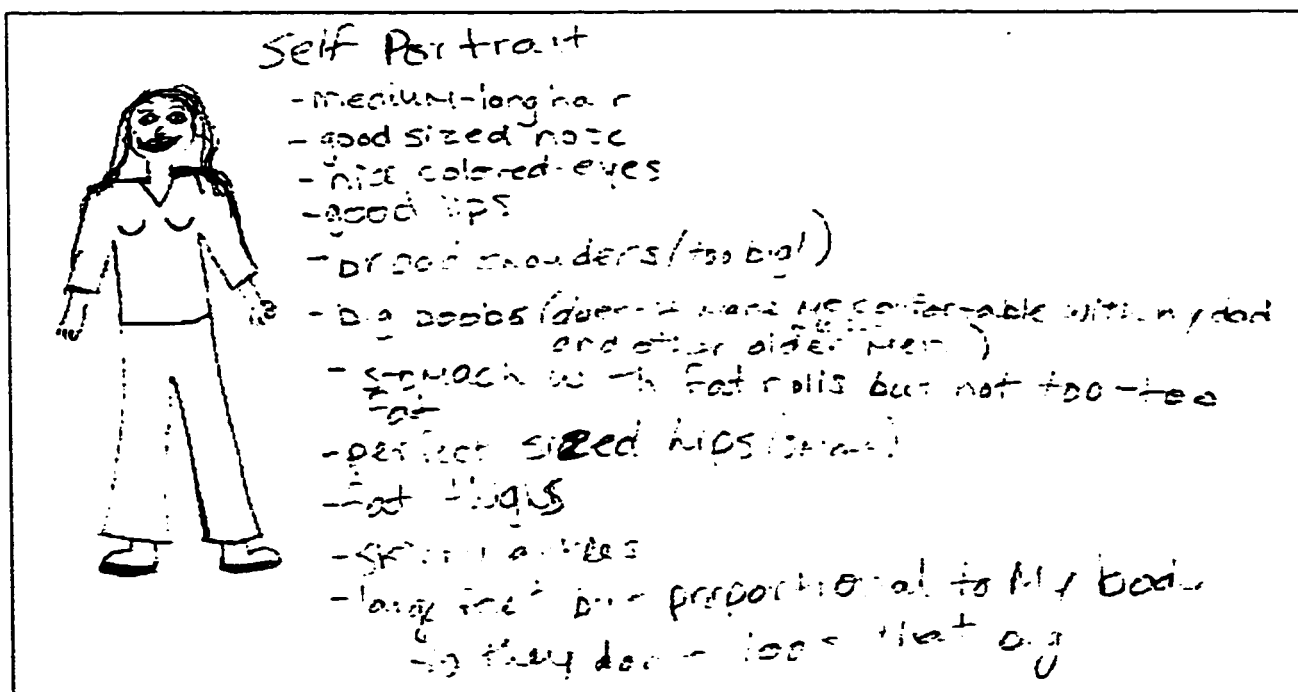 Self Portrait
- medium-long hair
- good sized nose
- nice colored-eyes
- good lips
- broad shoulders (too big!)
- big boobs (doesn't make me comfortable with my dad
and other older men)
- stomach with fat rolls but not too-too
fat
- perfect sized hips (small)
- fat thighs
- skinny ankles
- large feet but proportional to my body
so they don't look that big